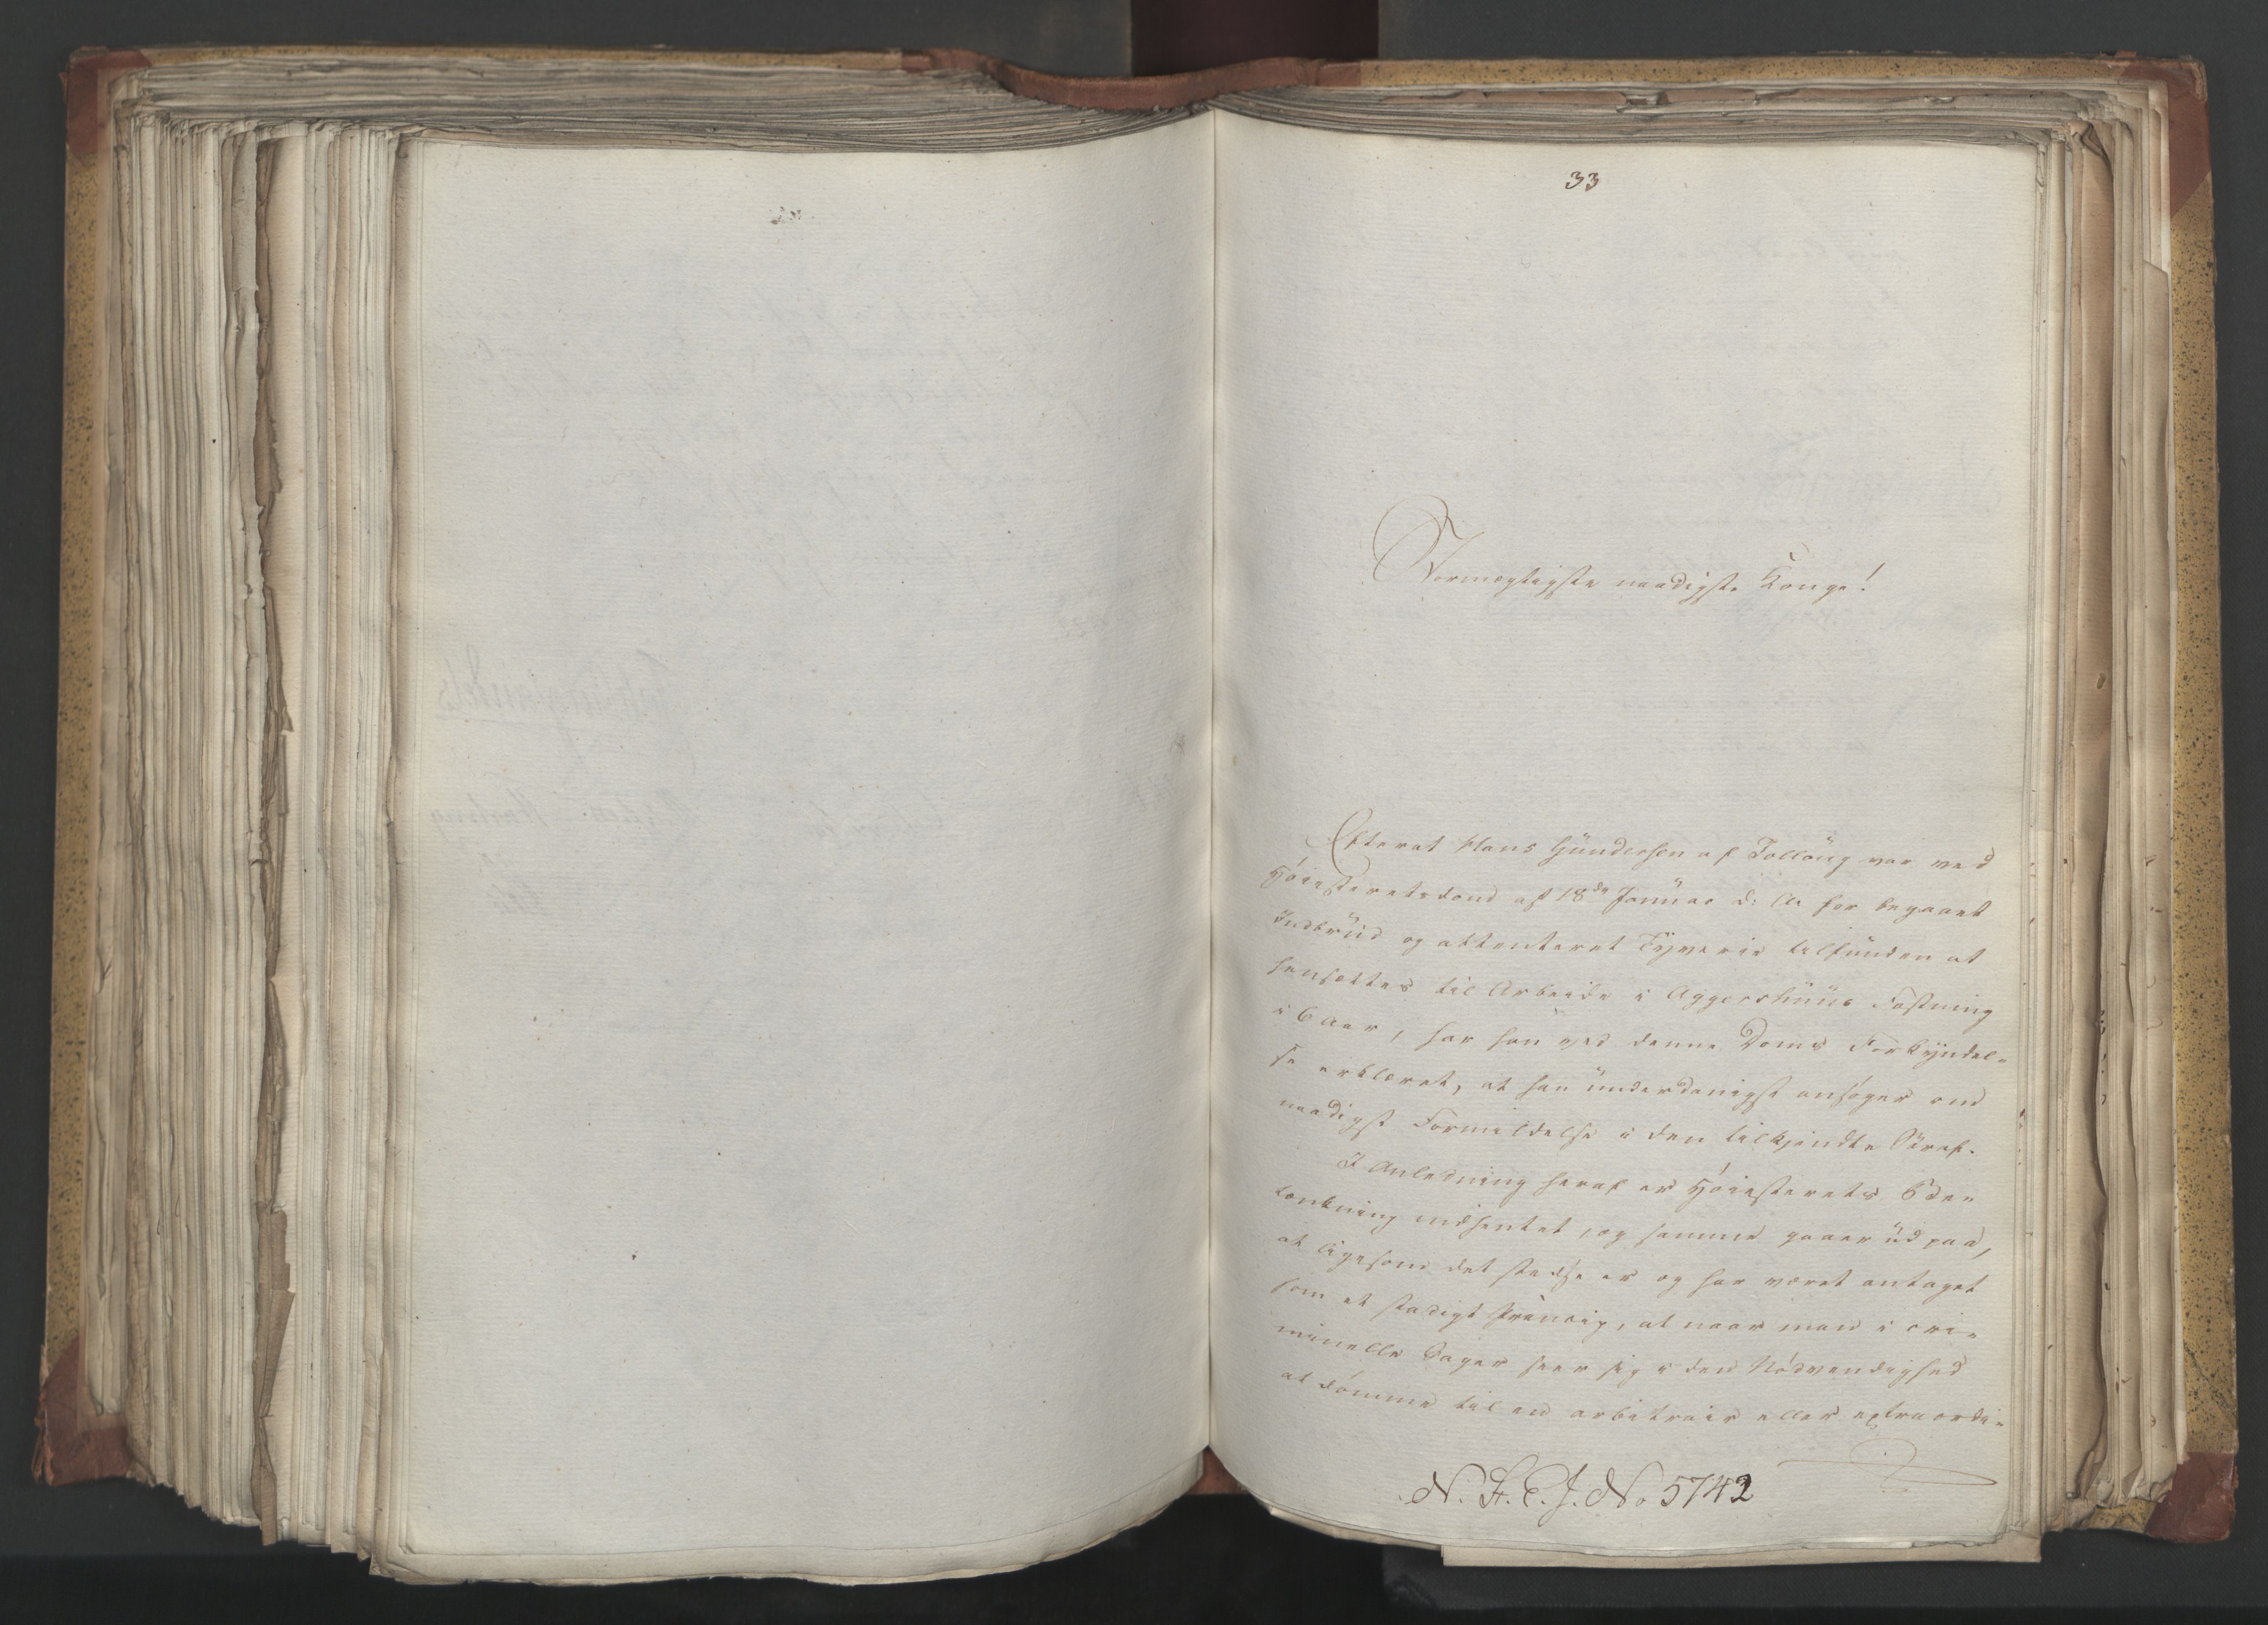 33
Stormægtigste naadigste Konge!
Efterat Hans Gundersen af Tolloug var ved
Høiesteretsdom af 18de Januar d: A: for begaaet
Indbrud og attenteret Tyverie tilfunden at
hensættes til Arbeide i Aggershuus Fæstning
i 6 Aar, har han ved denne Doms Forkyndel-
se erklæret, at han underdanigst ansøger om
naadigst Formildelse i den tilkjendte Straf.
I Anledning heraf er Høiesterets Be-
tænkning indhentet, og samme gaaer ud paa,
at ligesom det stedse er og har været antaget
som et stadigt Princip, at naar man i cri-
minelle Sager seer sig i den Nødvendighed
at dømme til en arbitrair eller extraordi-
N. 5742